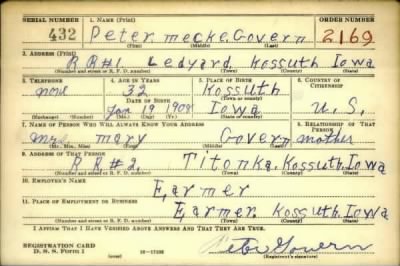 SERIAL NUMBER 1. NAME (Print) ORDER NUMBER
432 Peter mecke Govern 2169
(First) (Middle) (Last)
2. ADDRESS (Print)
RR#1 Ledyard Kossuth Iowa
(Number and street or R. F. D. number) (Town) (County) (State)
3. TELEPHONE 4. AGE IN YEARS 5. PLACE OF BIRTH 6. COUNTRY OF CITIZENSHIP
none 32 Kossuth
DATE OF BIRTH (Town or county)
Jan 19 1909 Iowa U.S.
(Exchange) (Number) (Mo.) (Day) (Yr.) (State or country)
7. NAME OF PERSON WHO WILL ALWAYS KNOW YOUR ADDRESS 8. RELATIONSHIP OF THAT PERSON
Mrs mary Govern mother
(Mr., Mrs., Miss) (First) (Middle) (Last)
9. ADDRESS OF THAT PERSON
RR#2, Titonka, Kossuth, Iowa
(Number and street or R. F. D. number) (Town) (County) (State)
10. EMPLOYER'S NAME
Farmer
11. PLACE OF EMPLOYMENT OR BUSINESS
Farmer Kossuth Iowa
(Number and street or R. F. D. number) (Town) (County) (State)
I AFFIRM THAT I HAVE VERIFIED ABOVE ANSWERS AND THAT THEY ARE TRUE.
REGISTRATION CARD
D. S. S. Form 1 (over) Peter Govern
(Registrant's signature)